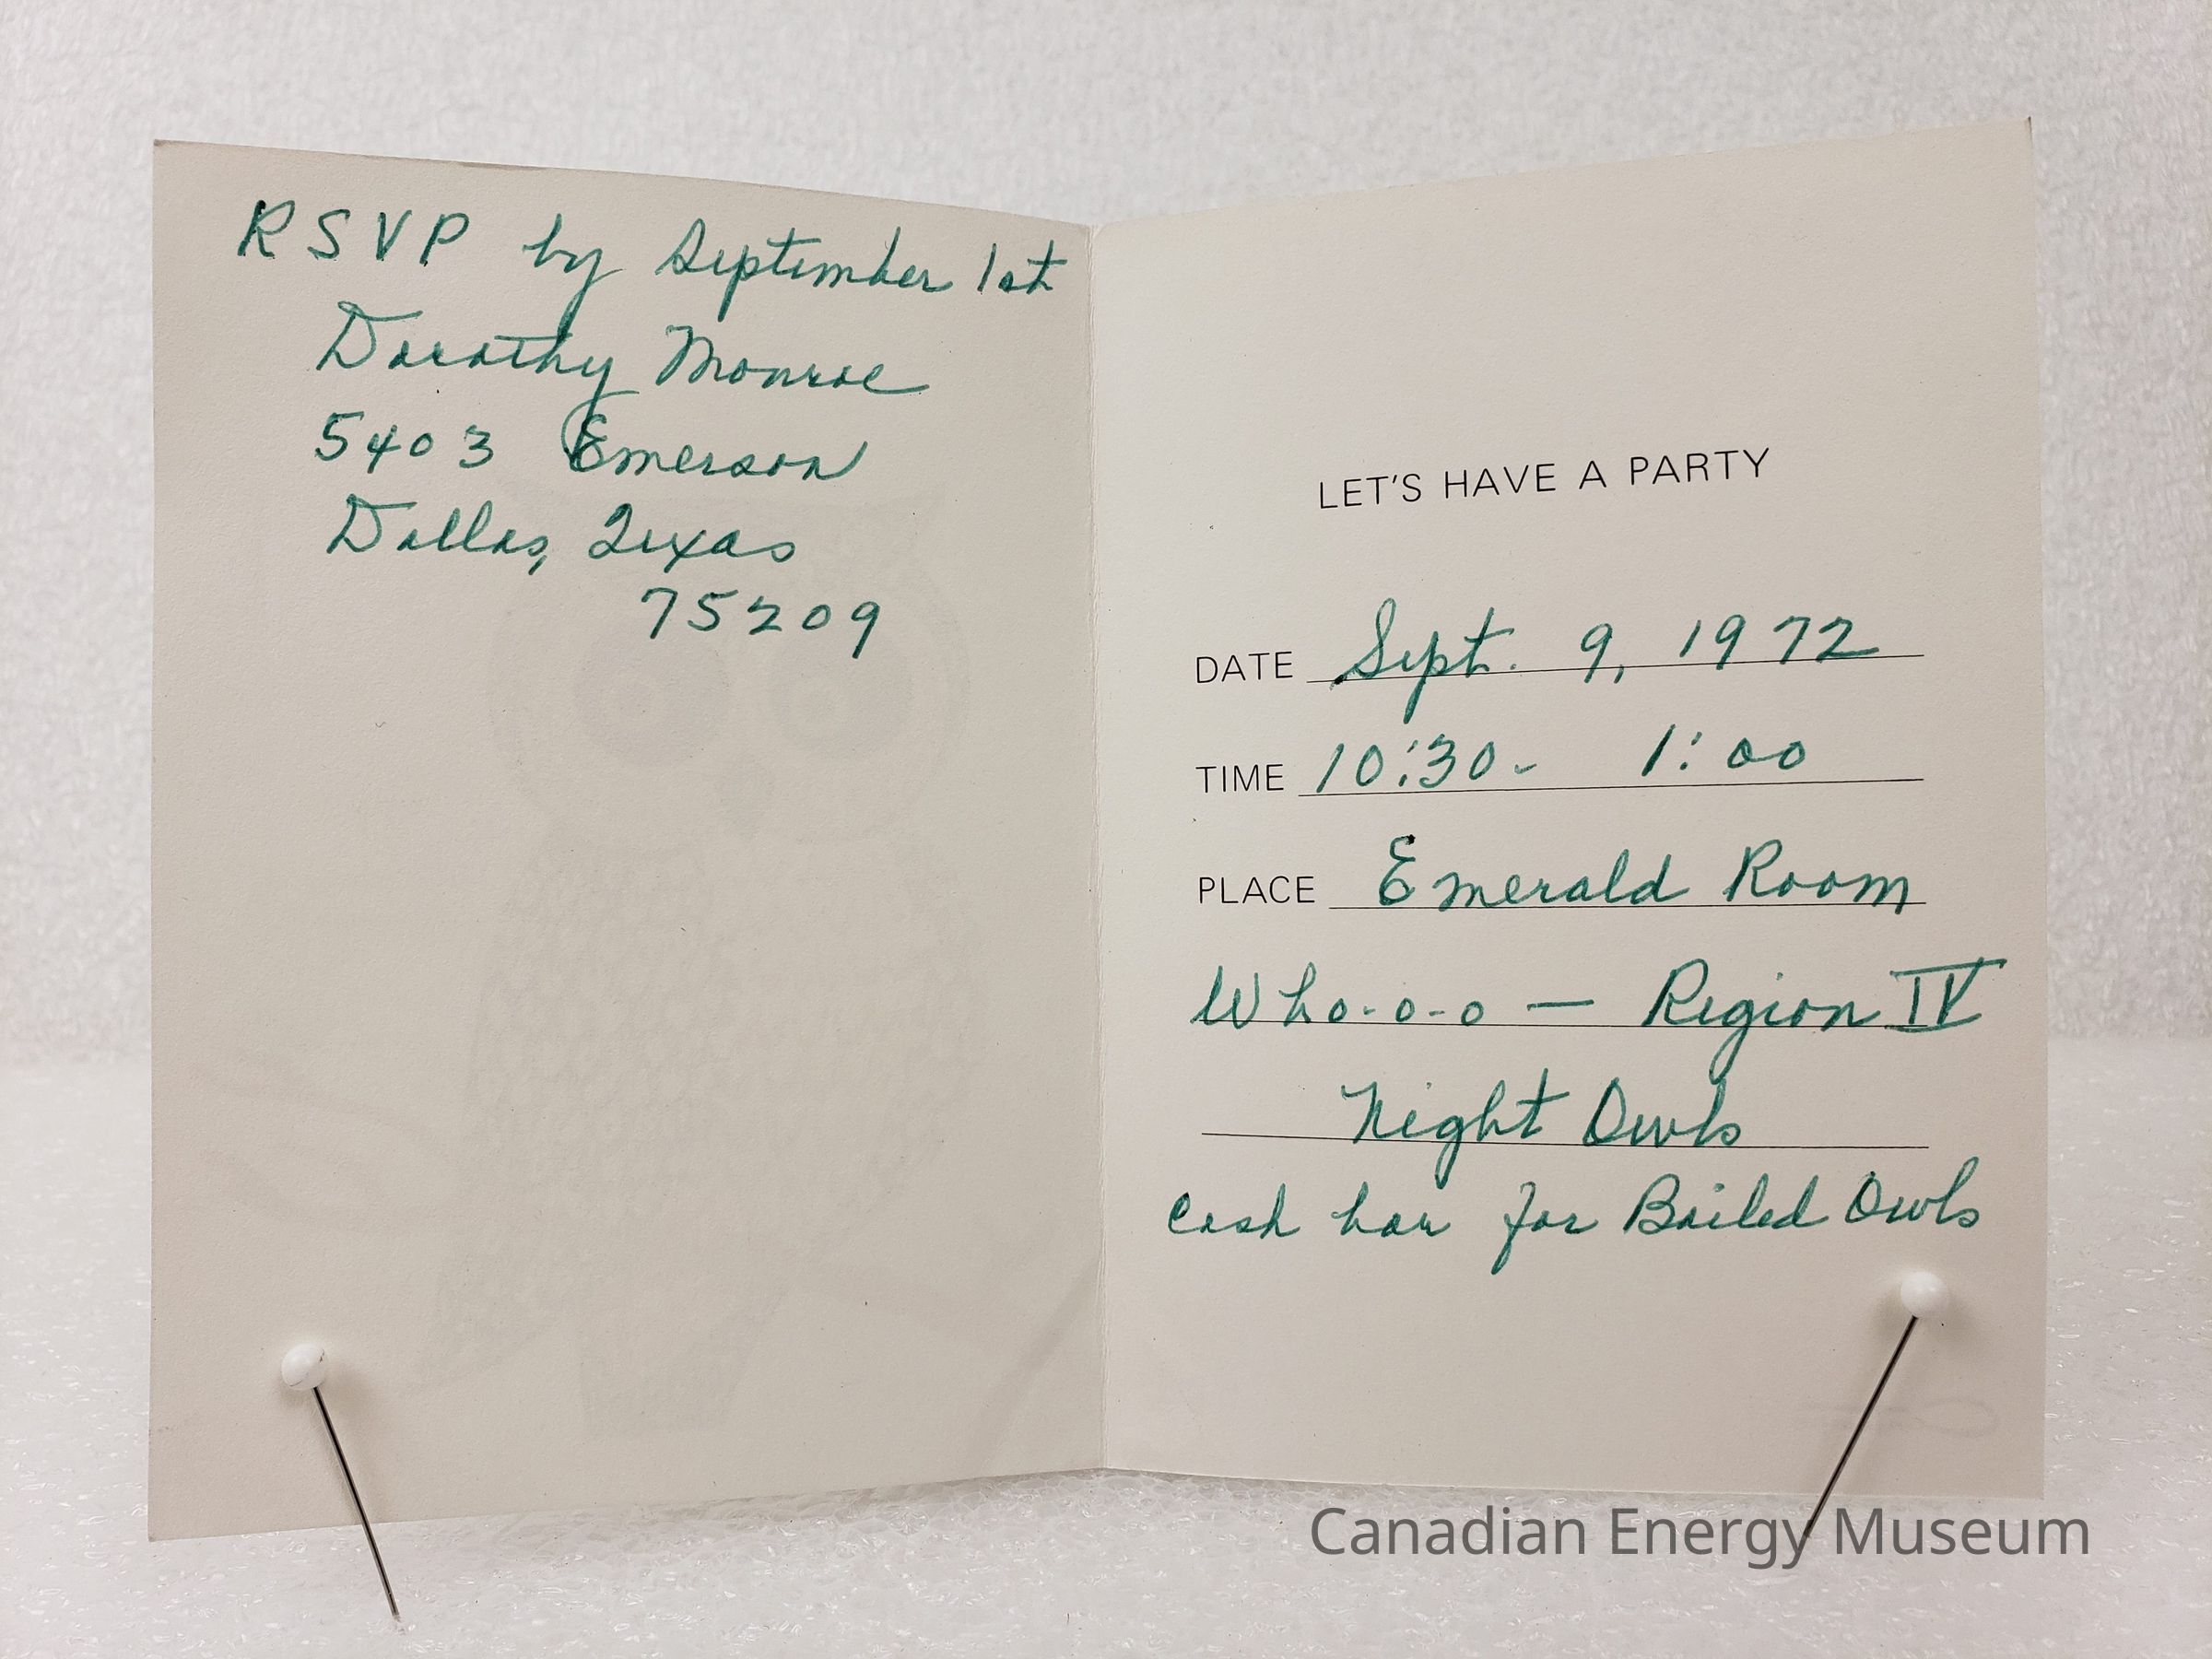 RSVP by September 1st
Dorothy Monroe
5403 Emerson
Dallas, Texas
75209
LET'S HAVE A PARTY
DATE Sept. 9, 1972
TIME 10:30- 1:00
PLACE Emerald Room
Who-o-o — Region IV
Night Owls
Cash bar for Boiled Owls
Canadian Energy Museum